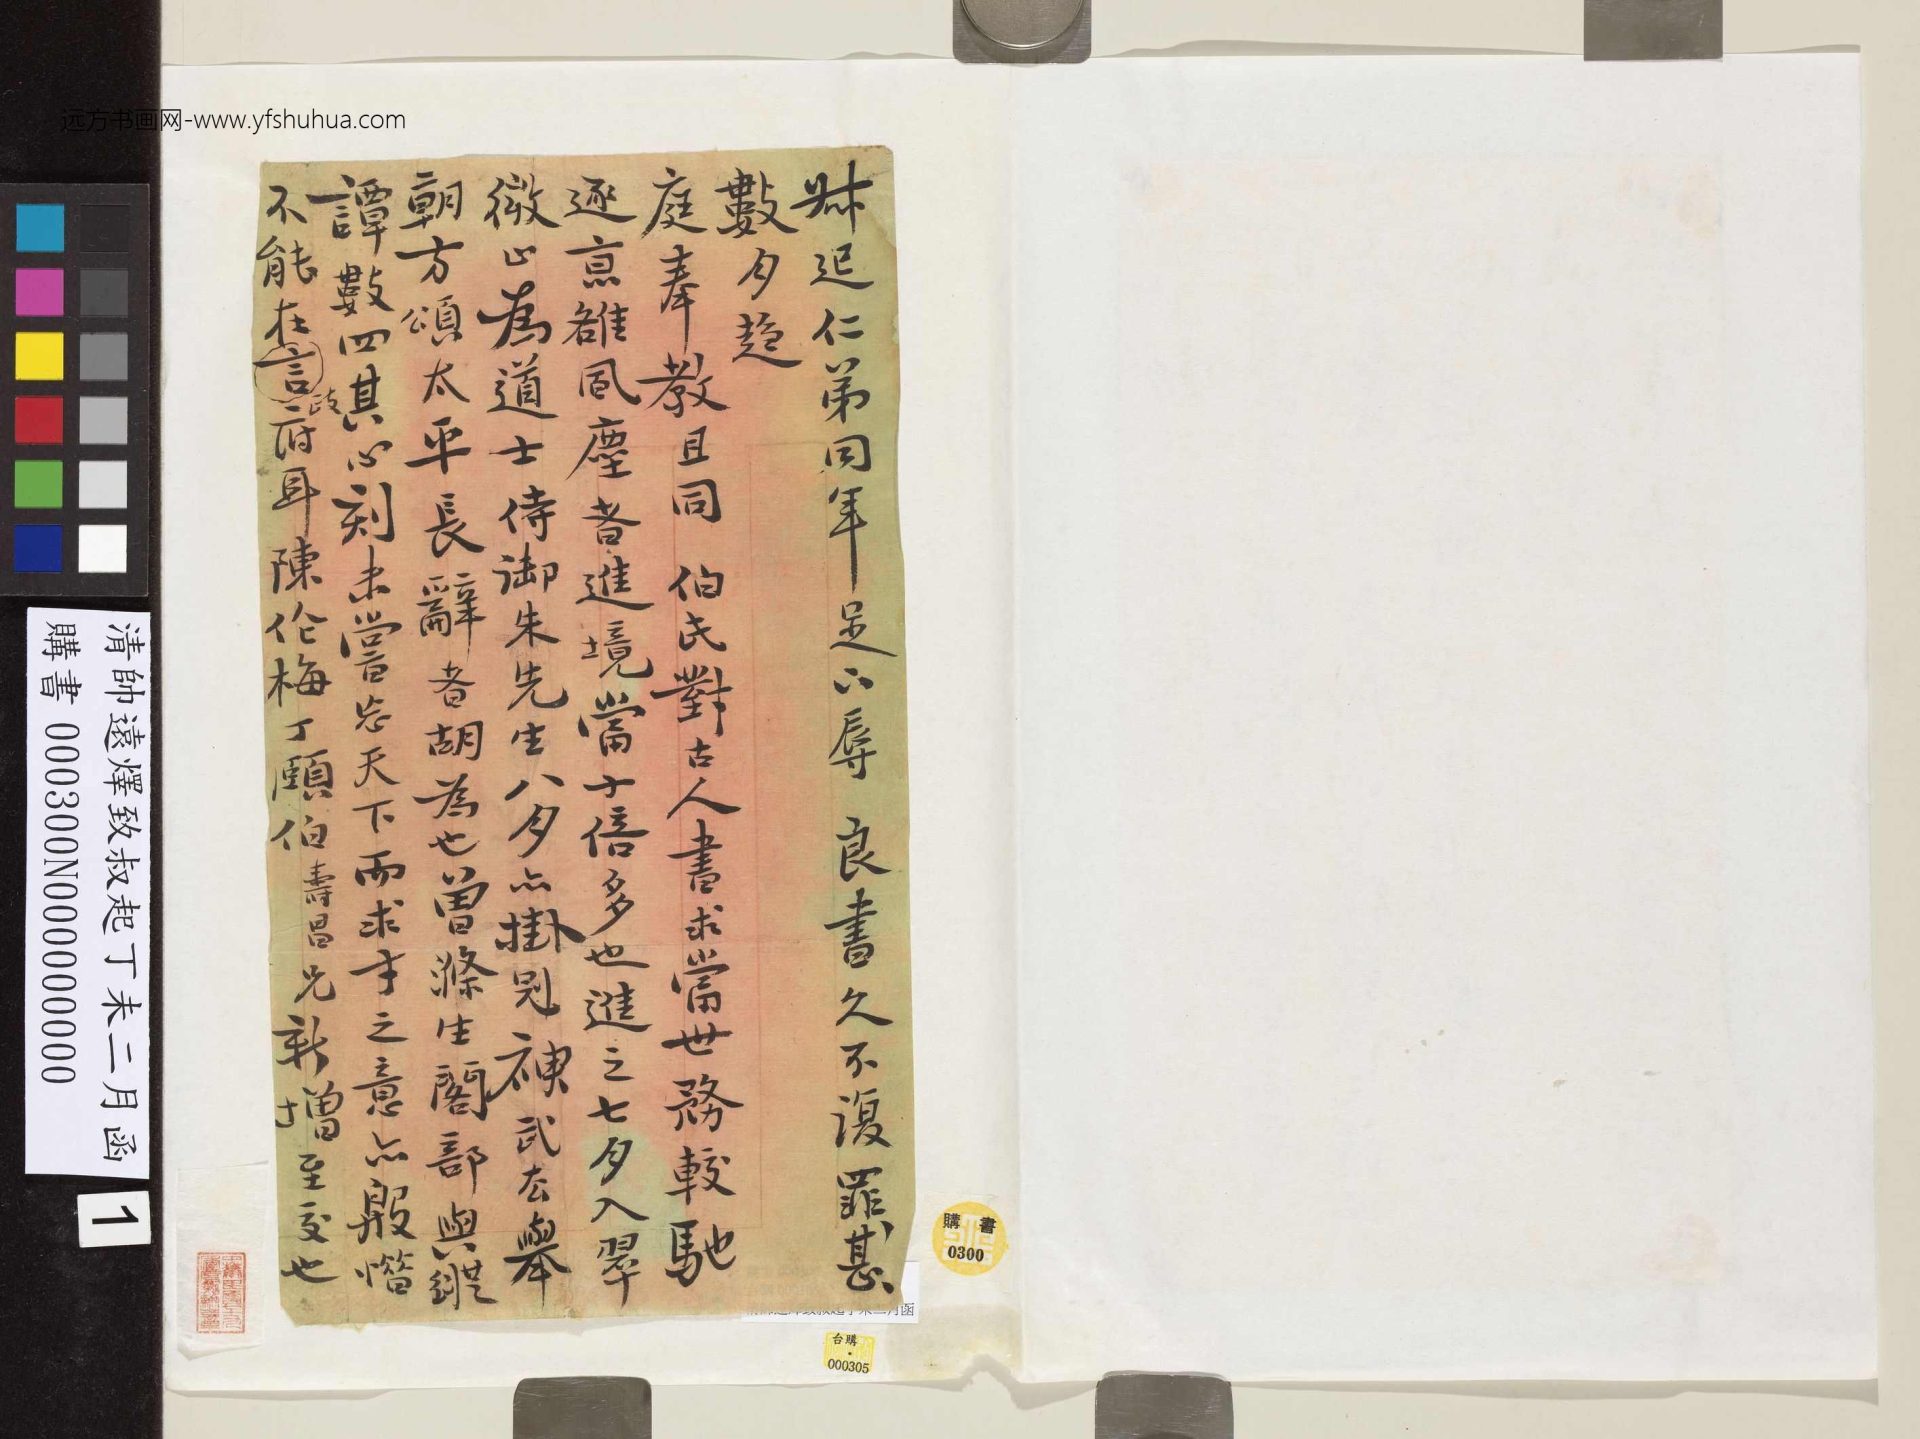 远方书画网-www.yfshuhua.com
叔起仁弟同年足下辱 良書久不復罪甚
數月趨
庭奉教且同 伯氏對古人書求當世務較馳
逐京雒風塵者進境當十倍多也進之七夕入翠
微山為道士侍御朱先生八月亦掛冠神武去舉
朝方頌太平長辭者胡為也曾滌生閣部與縱
譚數四其心刻未嘗忘天下而求才之意亦殷惜
不能在言政府耳陳作梅丁頤伯壽昌兄新增至交也
清帥遠燡致叔起丁未二月函
購書 000300N000000000
1
購書
0300
台購
000305